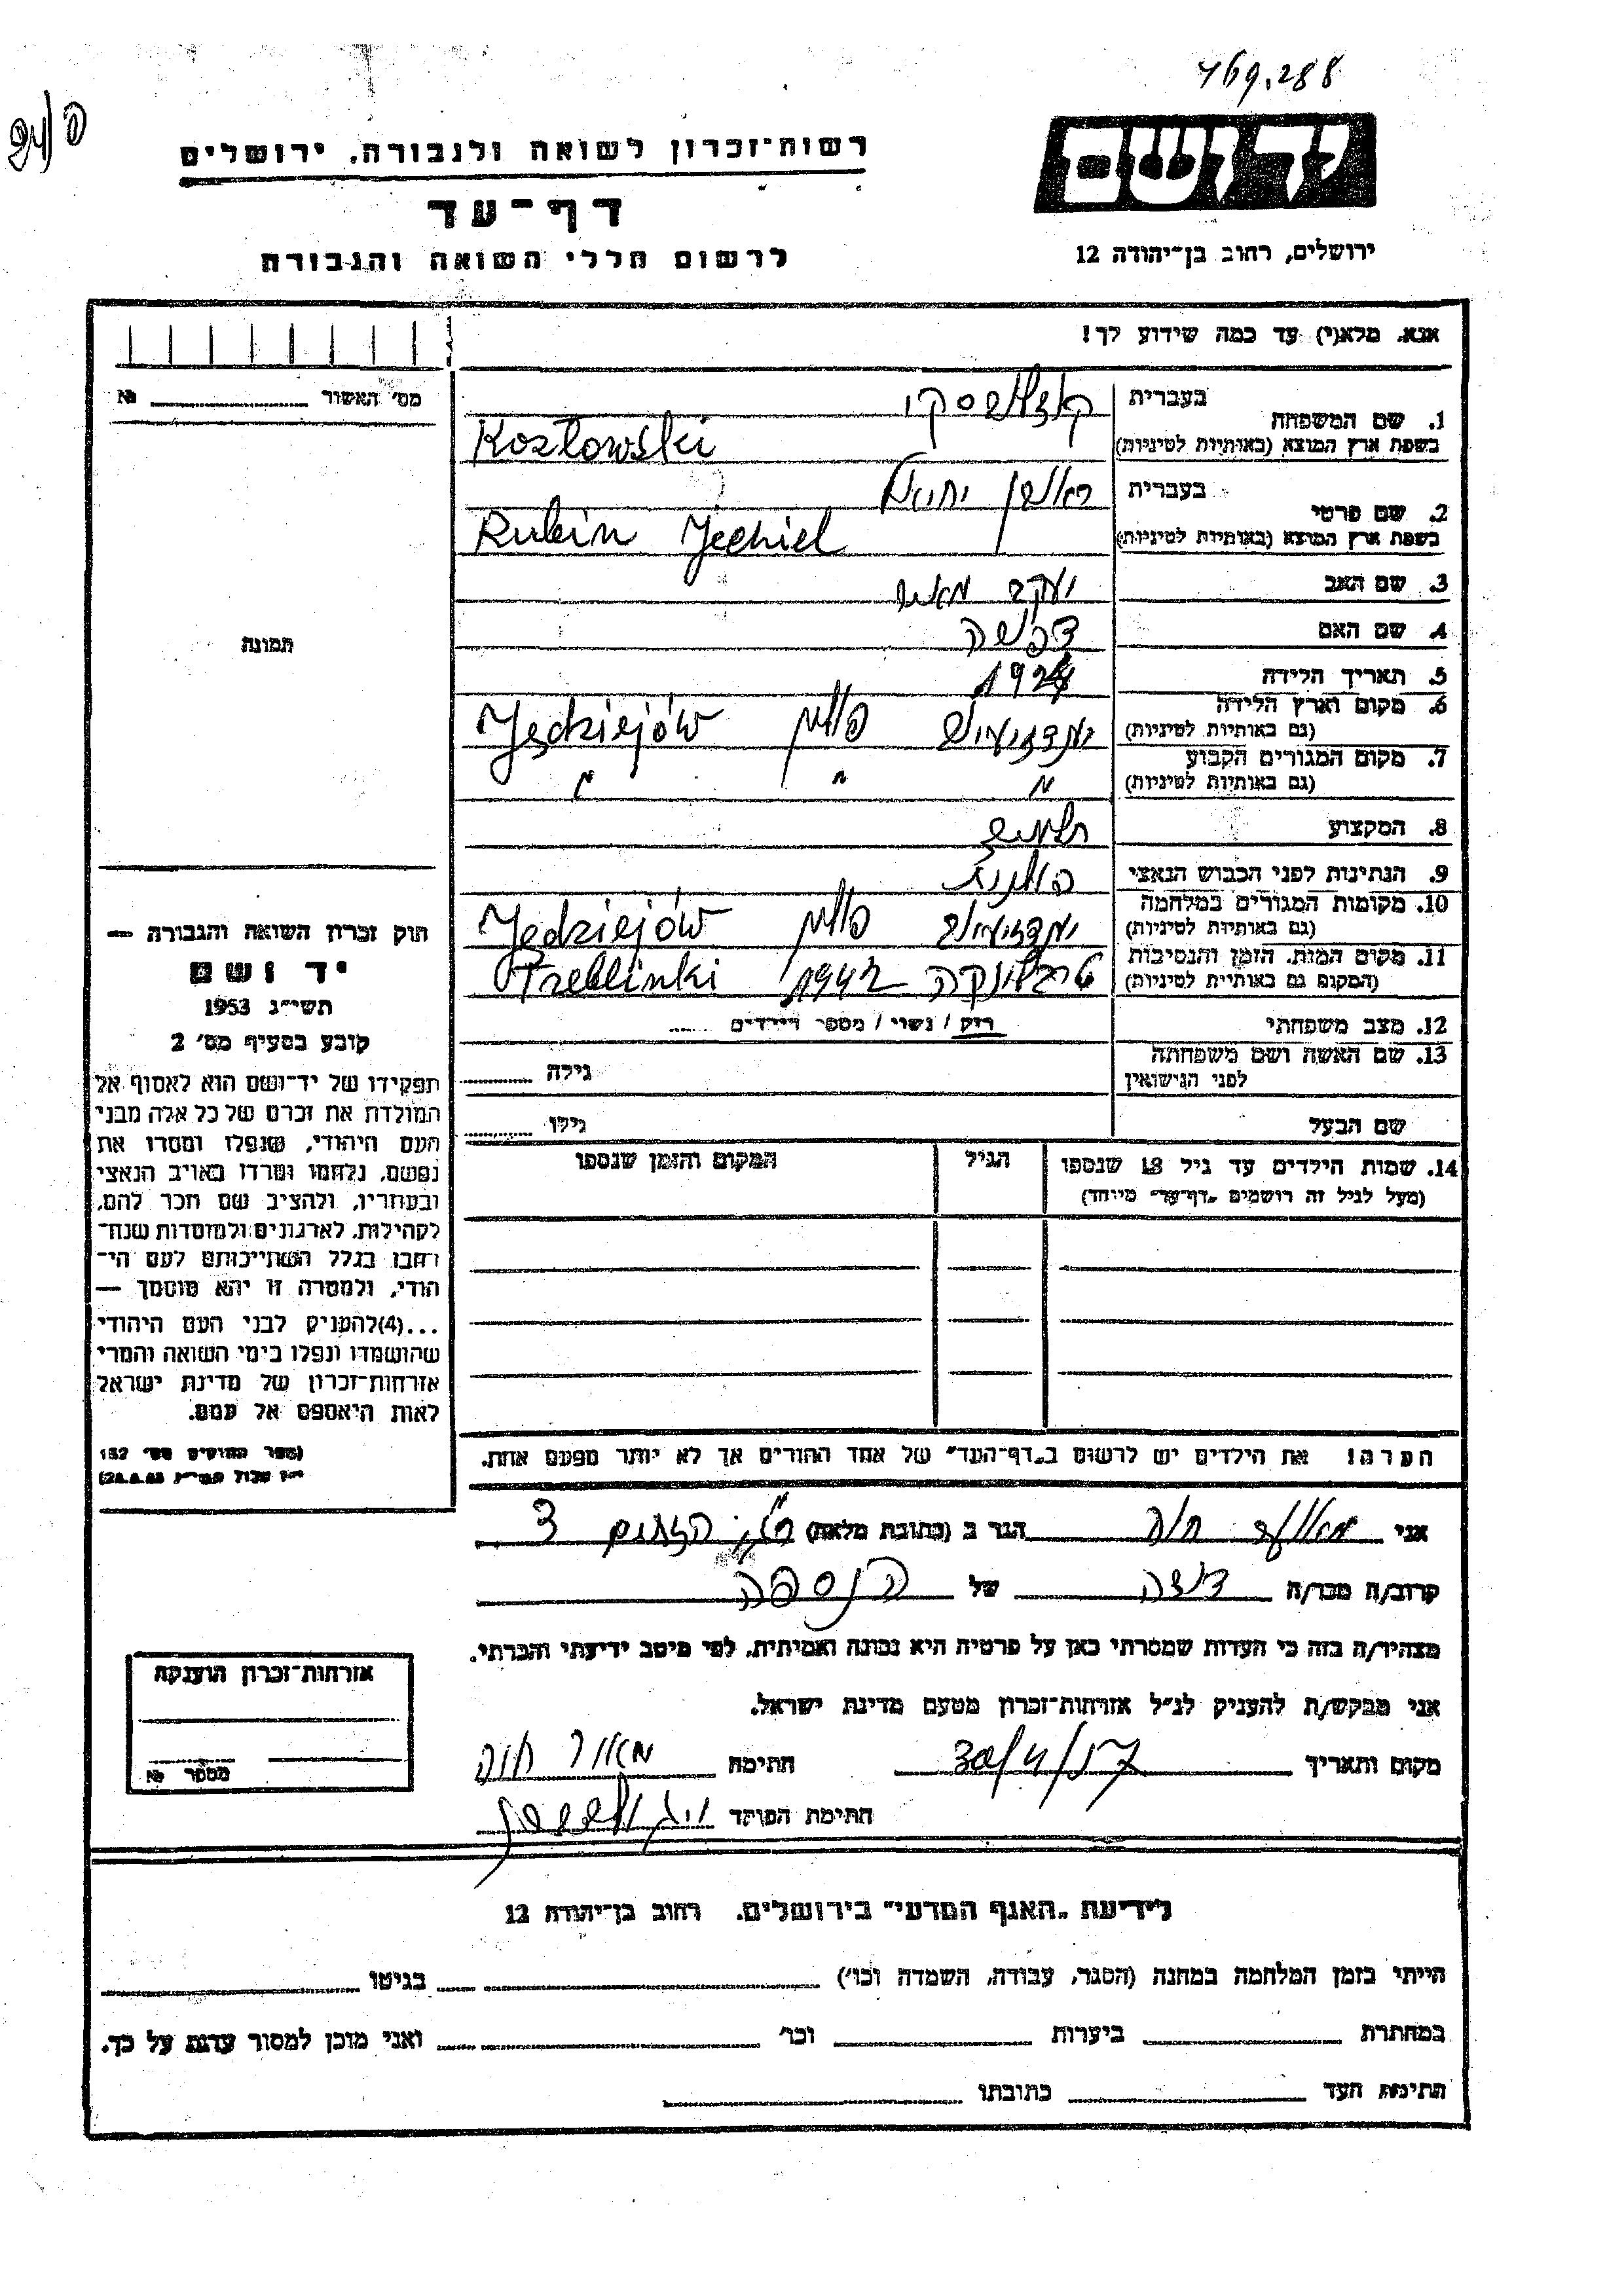 469.288
יד ושם
ירושלים, רחוב בן־יהודה 12
רשות־זכרון לשואה ולגבורה, ירושלים
דף־עד
לרשום חללי השואה והגבורה
אנא, מלא(י) עד כמה שידוע לך!
מס' האשור № ________
1. שם המשפחה בעברית קוזלובסקי
בשפת ארץ המוצא (באותיות לטיניות) Kozłowski
2. שם פרטי בעברית ראובן יחיאל
בשפת ארץ המוצא (באותיות לטיניות) Rubin Jechiel
3. שם האב יעקב מאיר
4. שם האם דבשה
5. תאריך הלידה 1924
6. מקום וארץ הלידה (גם באותיות לטיניות) ינדזיעיוב פולין Jędziejów
7. מקום המגורים הקבוע (גם באותיות לטיניות) " " "
8. המקצוע
9. הנתינות לפני הכבוש הנאצי פולנית
10. מקומות המגורים במלחמה (גם באותיות לטיניות) ינדזיעיוב פולין Jędziejów
11. מקום המות, הזמן והנסיבות (המקום גם באותיות לטיניות) טרבלינקה 1942 Treblinki
12. מצב משפחתי רוק / נשוי / מספר הילדים ......
13. שם האשה ושם משפחתה לפני הנישואין גילה ........
שם הבעל גילו ........
14. שמות הילדים עד גיל 18 שנספו הגיל המקום והזמן שנספו
(מעל לגיל זה רושמים „דף־עד" מיוחד)
הערה! את הילדים יש לרשום ב„דף־העד" של אחד ההורים אך לא יותר מפעם אחת.
תמונה
חוק זכרון השואה והגבורה —
יד ושם
תשי״ג 1953
קובע בסעיף מס' 2
תפקידו של יד־ושם הוא לאסוף אל
המולדת את זכרם של כל אלה מבני
העם היהודי, שנפלו ומסרו את
נפשם, נלחמו ומרדו באויב הנאצי
ובעוזריו, ולהציב שם וזכר להם,
לקהילות, לארגונים ולמוסדות שנח־
רבו בגלל השתייכותם לעם הי־
הודי, ולמטרה זו יהא מוסמך —
...(4) להעניק לבני העם היהודי
שהושמדו ונפלו בימי השואה והמרי
אזרחות־זכרון של מדינת ישראל
לאות היאספם אל עמם.
(ספר החוקים מס' 132
אני חוה הגר ב (כתובת מלאה) 3
קרוב/ה מכר/ה דודה של הנספה
מצהיר/ה בזה כי העדות שמסרתי כאן על פרטיה היא נכונה ואמיתית, לפי מיטב ידיעתי והכרתי.
אני מבקש/ת להעניק לנ״ל אזרחות־זכרון מטעם מדינת ישראל.
מקום ותאריך 30/4/57 חתימה מאור חוה
חתימת הפוקד
אזרחות־זכרון הוענקה
מספר №
לידיעת „האגף המדעי" בירושלים, רחוב בן־יהודה 12
הייתי בזמן המלחמה במחנה (הסגר, עבודה, השמדה וכו') ________ בגיטו ________
במחתרת ________ ביערות ________ וכו' ________ ואני מוכן למסור עדות על כך.
חתימת העד ________ כתובתו ________